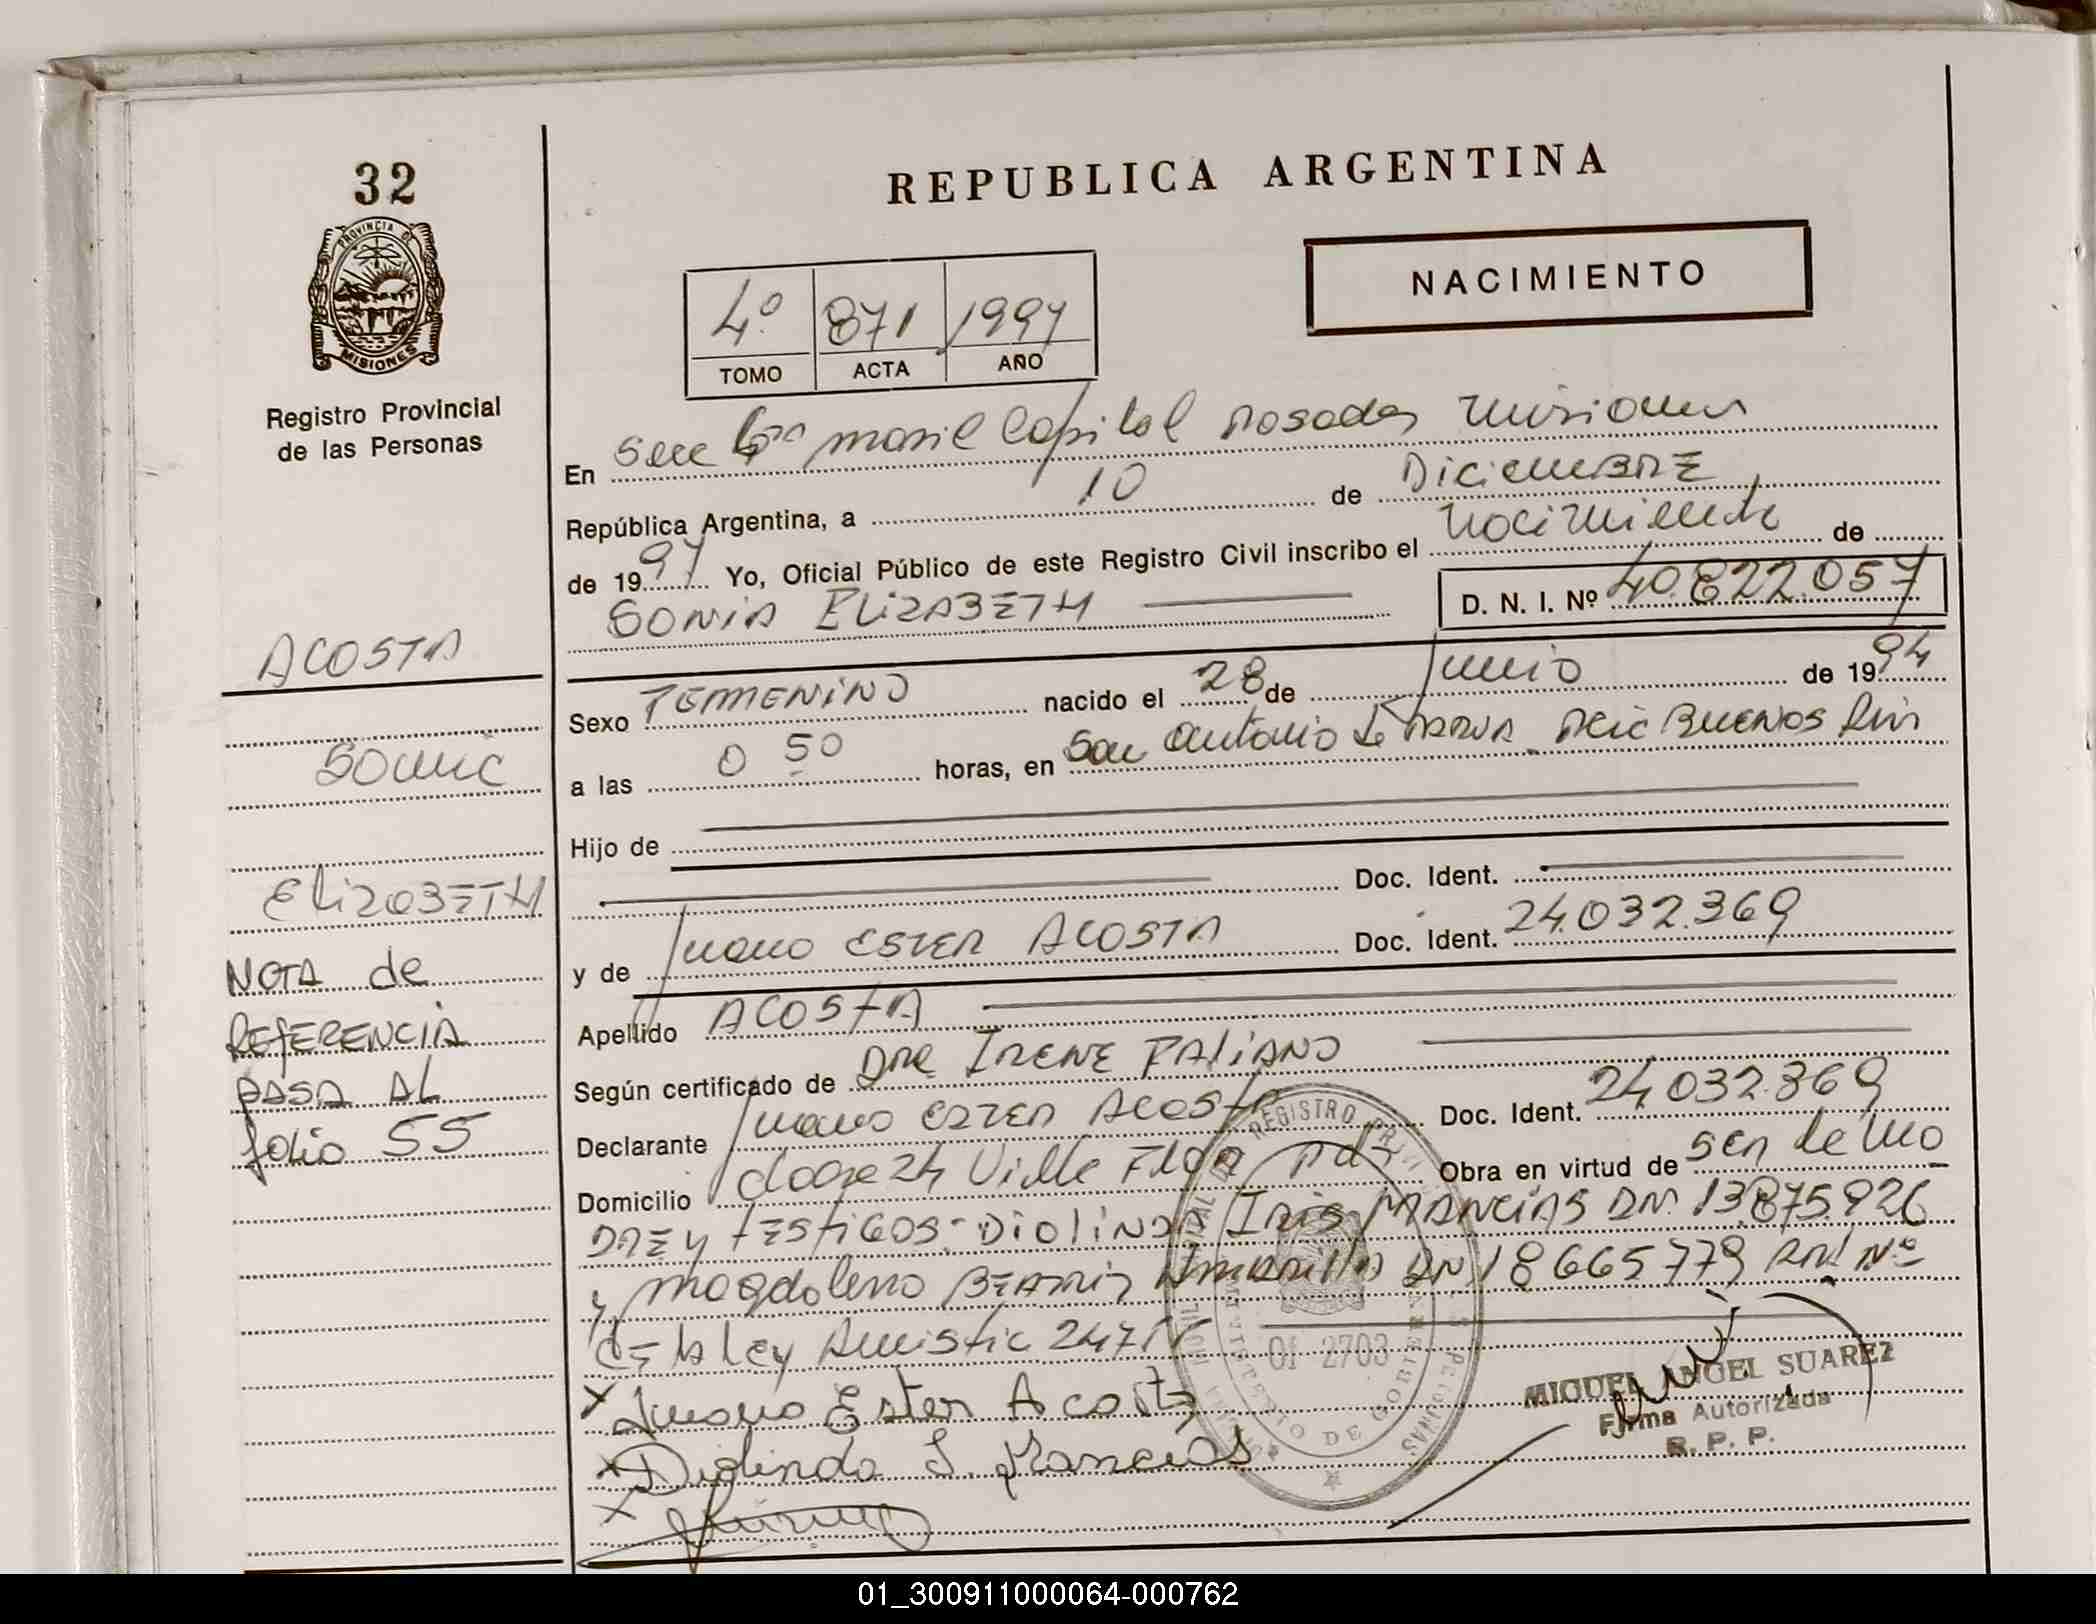 32
REPUBLICA ARGENTINA
PROVINCIA DE
MISIONES
NACIMIENTO
4º 871 1997
TOMO ACTA AÑO
Registro Provincial
de las Personas
En Secc movil Capital Posadas Misiones
República Argentina, a 10 de DICIEMBRE
de 1997 Yo, Oficial Público de este Registro Civil inscribo el nacimiento de
SONIA ELIZABETH D. N. I. Nº 40.822.057
ACOSTA
SONIA
ELIZABETH
NOTA de
REFERENCIA
PASA AL
folio 55
Sexo FEMENINO nacido el 28 de Junio de 1994
a las 0 50 horas, en San Antonio de PADUA BUENOS
Hijo de
Doc. Ident.
y de Juana ESTER ACOSTA Doc. Ident. 24.032.369
Apellido ACOSTA
Según certificado de DRA IRENE PALIANO
Declarante Juana ESTER ACOSTA Doc. Ident. 24.032.369
Domicilio 24 Obra en virtud de ser la MA
DRE y TESTIGOS: DIOLINDA IRIS MANCIAS DNI 13.875.926
y Magdalena BEATRIZ DNI 18665779
DE LA LEY
Juana Ester Acosta
Diolinda I. Mancias
REGISTRO
MINISTERIO DE GOBIERNO
Of 2703
MIGUEL ANGEL SUAREZ
Firma Autorizada
R. P. P.
01_300911000064-000762